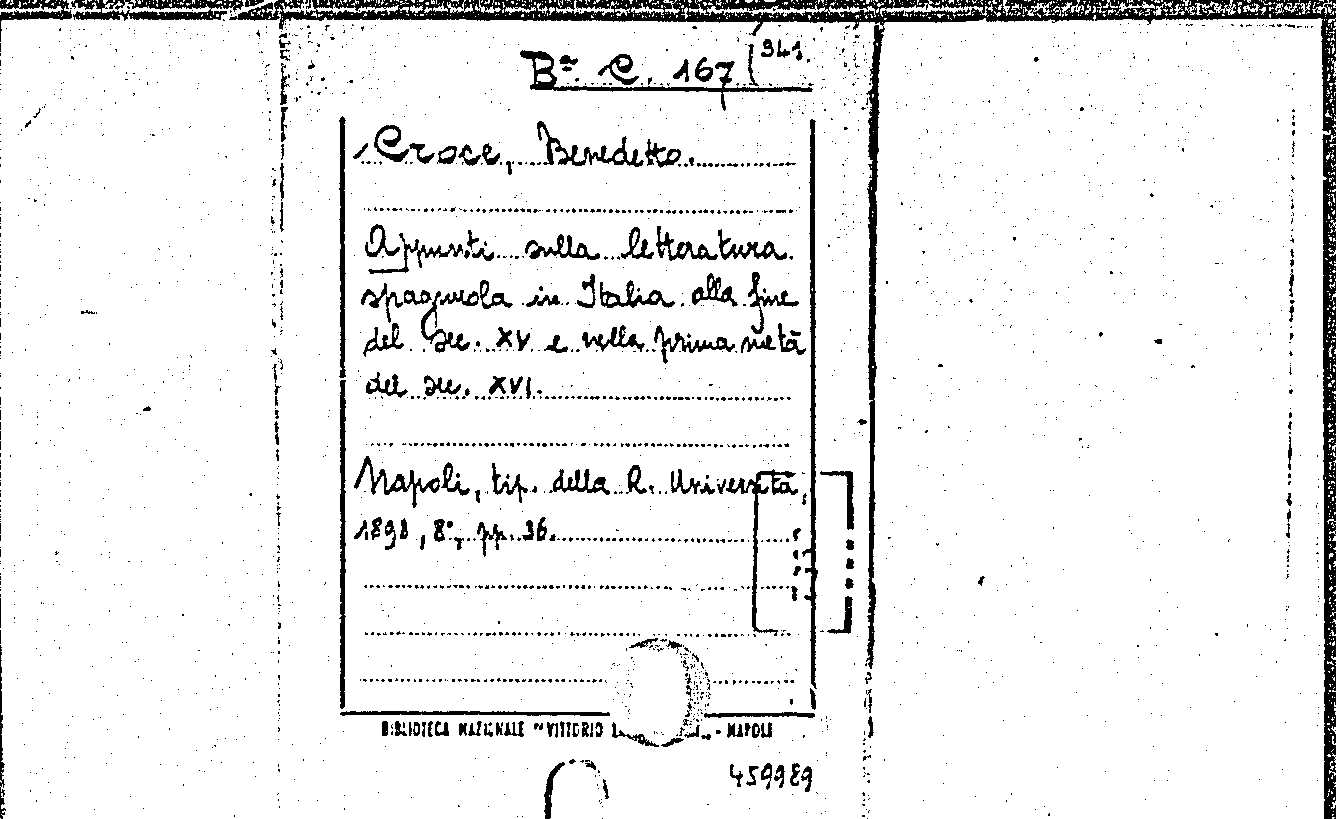 Bᵃ. C. 167 (341.
Croce, Benedetto.
Appunti sulla letteratura
spagnuola in Italia alla fine
del sec. XV e nella prima metà
del sec. XVI.
Napoli, tip. della R. Università,
1898, 8°, pp. 36.
BIBLIOTECA NAZIONALE "VITTORIO - NAPOLI
459989